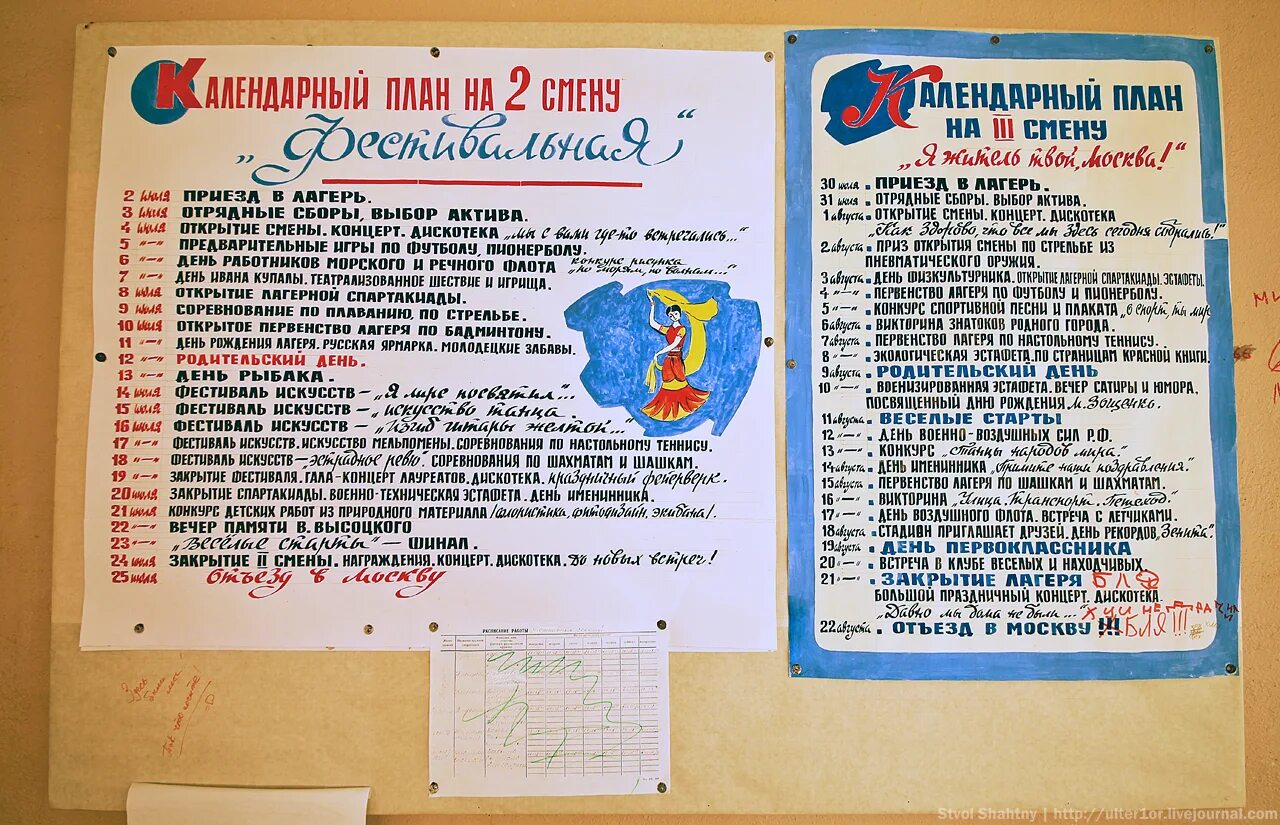 Календарный план на 2 смену
„Фестивальная“
2 июля Приезд в лагерь.
3 июля Отрядные сборы, выбор актива.
4 июля Открытие смены. Концерт. Дискотека „Мы с вами где-то встречались..."
5 –"– Предварительные игры по футболу, пионерболу.
6 –"– День работников морского и речного флота конкурс рисунка
„По морям, по волнам..."
7 –"– День Ивана Купалы. Театрализованное шествие и игрища.
8 июля Открытие лагерной спартакиады.
9 июля Соревнование по плаванию, по стрельбе.
10 июля Открытое первенство лагеря по бадминтону.
11 –"– День рождения лагеря. Русская ярмарка. Молодецкие забавы.
12 –"– Родительский день.
13 –"– День рыбака.
14 июля Фестиваль искусств – „Я лире посвятил..."
15 июля Фестиваль искусств – „Искусство танца.
16 июля Фестиваль искусств – „Изгиб гитары желтой..."
17 –"– Фестиваль искусств. Искусство Мельпомены. Соревнования по настольному теннису.
18 –"– Фестиваль искусств – „Эстрадное ревю". Соревнования по шахматам и шашкам.
19 –"– Закрытие фестиваля. Гала-концерт лауреатов. Дискотека. Праздничный фейерверк.
20 июля Закрытие спартакиады. Военно-техническая эстафета. День именинника.
21 июля Конкурс детских работ из природного материала /флористика, фитодизайн, экибана/.
22 –"– Вечер памяти В. Высоцкого
23 –"– „Весёлые старты" – финал.
24 июля Закрытие II смены. Награждения. Концерт. Дискотека. До новых встреч!
25 июля Отъезд в Москву
Календарный план
на III смену
„Я житель твой, Москва!"
30 июля . Приезд в лагерь.
31 июля . Отрядные сборы. Выбор актива.
1 августа . Открытие смены. Концерт. Дискотека
„Как здорово, что все мы здесь сегодня собрались!"
2 августа . Приз открытия смены по стрельбе из
пневматического оружия.
3 августа . День физкультурника. Открытие лагерной спартакиады. Эстафеты.
4 –"– . Первенство лагеря по футболу и пионерболу.
5 –"– . Конкурс спортивной песни и плаката „О спорт, ты мир
6 августа . Викторина знатоков родного города.
7 августа . Первенство лагеря по настольному теннису.
8 –"– . Экологическая эстафета. По страницам Красной книги.
9 августа . Родительский день
10 –"– . Военизированная эстафета. Вечер сатиры и юмора,
посвященный дню рождения М. Зощенко.
11 августа . Веселые старты
12 –"– . День Военно-воздушных сил Р.Ф.
13 –"– . Конкурс „Танцы народов мира.
14 августа . День именинника „Примите наши поздравления".
15 августа . Первенство лагеря по шашкам и шахматам.
16 –"– . Викторина „Улица. Транспорт. Пешеход."
17 –"– . День воздушного флота. Встреча с летчиками.
18 августа . Стадион приглашает друзей. День рекордов „Зенита".
19 августа . День первоклассника
20 –"– . Встреча в клубе веселых и находчивых.
21 –"– . Закрытие лагеря БЛЯ
Большой праздничный концерт. Дискотека
„Давно мы дома не были..."
22 августа . Отъезд в Москву !!! БЛЯ!!!
РАСПИСАНИЕ РАБОТЫ
Здесь
были
Stvol Shahtny | http://ulter1or.livejournal.com